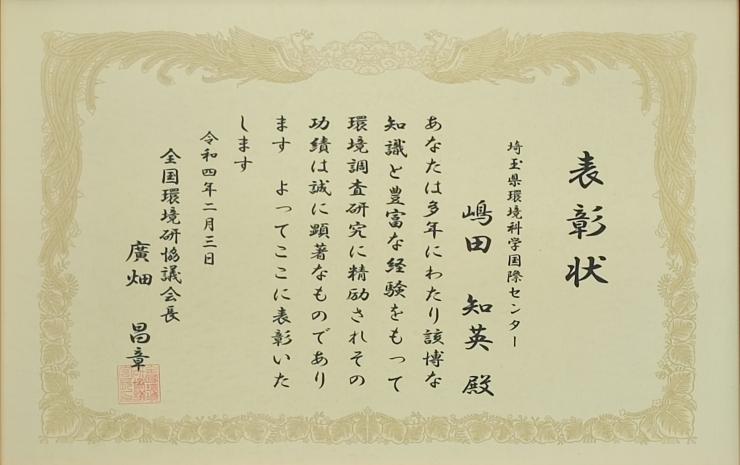 表彰状
埼玉県環境科学国際センター
嶋田 知英 殿
あなたは多年にわたり該博な
知識と豊富な経験をもって
環境調査研究に精励されその
功績は誠に顕著なものであり
ます よってここに表彰いた
します
令和四年二月三日
全国環境研協議会長
廣畑 昌章